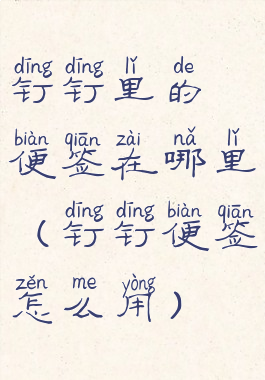 dīng dīng lǐ de
钉钉里的
biàn qiān zài nǎ lǐ
便签在哪里
dīng dīng biàn qiān
(钉钉便签
zěn me yòng
怎么用)